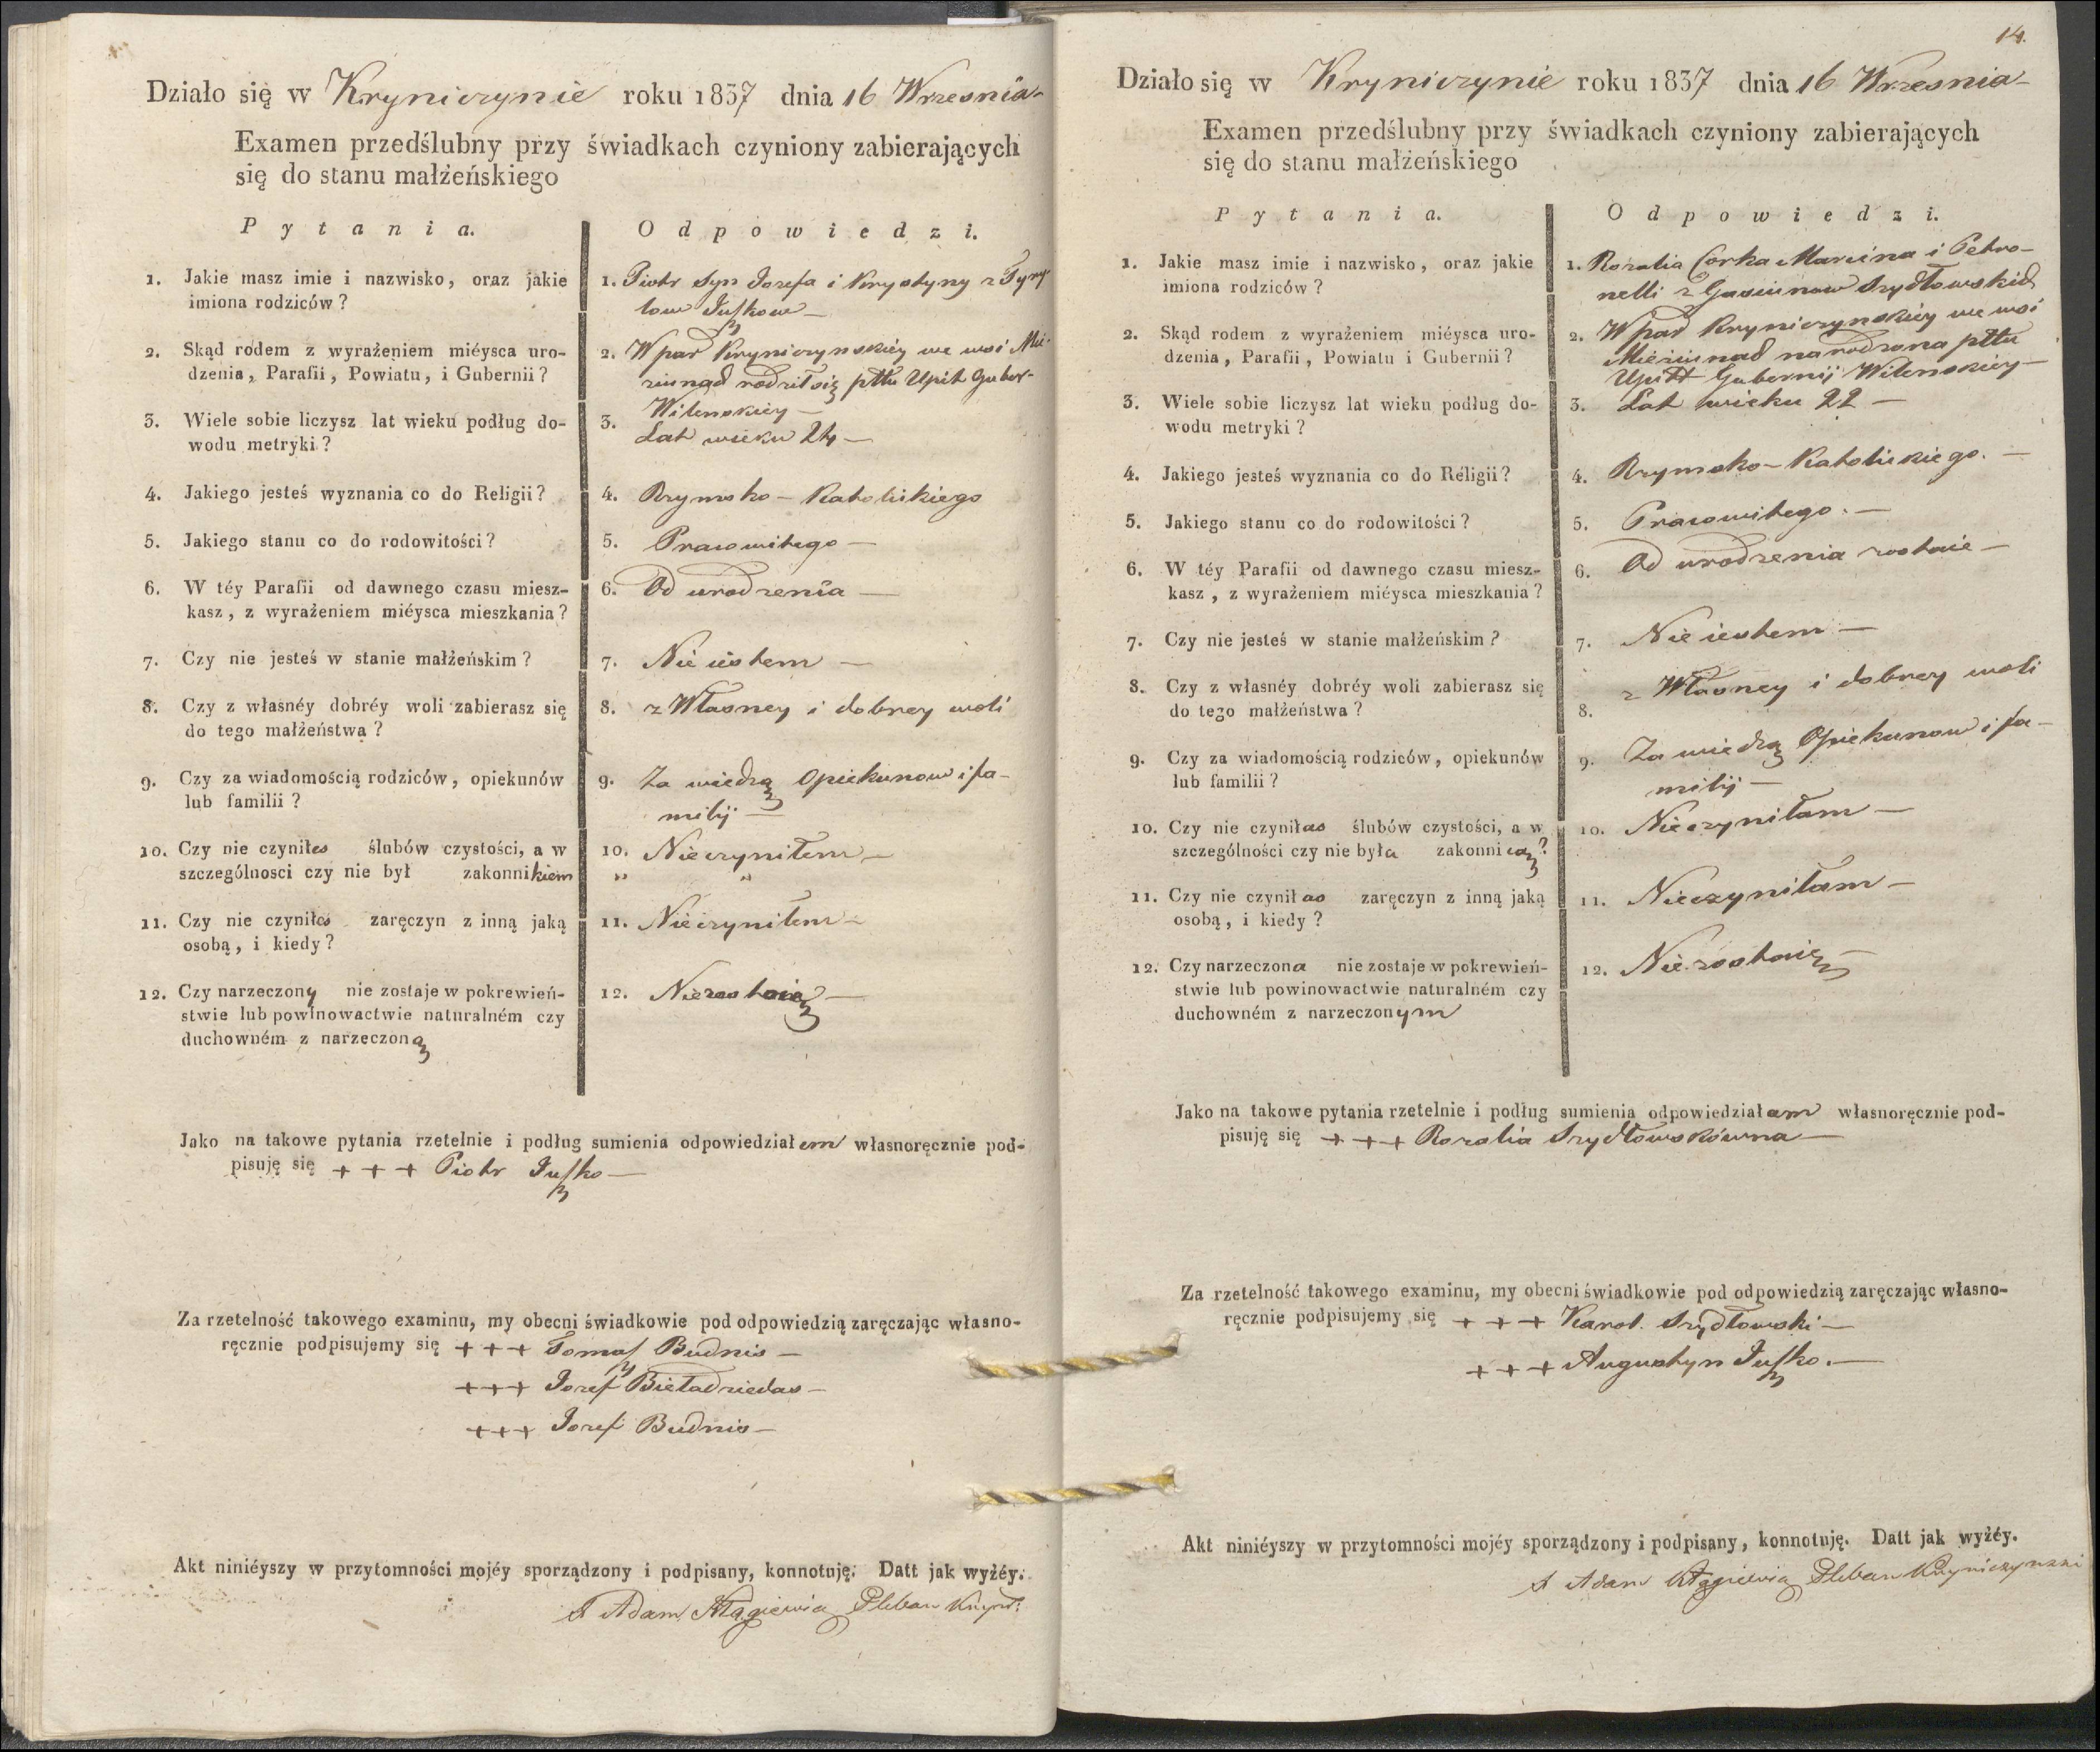 Działo się w Kryniczynie roku 1837 dnia 16 Wrzesnia
Examen przedślubny przy świadkach czyniony zabierających
się do stanu małżeńskiego
Pytania.
Odpowiedzi.
1. Jakie masz imie i nazwisko, oraz jakie
imiona rodziców?
1. Piotr Syn Jozefa i Krystyny z
Juszkow
2. Skąd rodem z wyrażeniem miéysca uro-
dzenia, Parafii, Powiatu, i Gubernii?
2. W par Kryniczynskiéy we wsi Mie-
ziunad rodził się pttu Upit Guber-
Wilenskiey
3. Wiele sobie liczysz lat wieku podług do-
wodu metryki?
3. Lat wieku 24
4. Jakiego jesteś wyznania co do Religii?
4. Rzymsko-Katolickiego
5. Jakiego stanu co do rodowitości?
5. Pracowitego
6. W téy Parafii od dawnego czasu miesz-
kasz, z wyrażeniem miéysca mieszkania?
6. Od urodzenia
7. Czy nie jesteś w stanie małżeńskim?
7. Nie iestem
8. Czy z własnéy dobréy woli zabierasz się
do tego małżeństwa?
8. z Własney i dobrey woli
9. Czy za wiadomością rodziców, opiekunów
lub familii?
9. Za wiedzą Opiekunow i fa-
milij
10. Czy nie czyniłes ślubów czystości, a w
szczególnosci czy nie był zakonnikiem
10. Nieczyniłem
„ „
11. Czy nie czyniłes zaręczyn z inną jaką
osobą, i kiedy?
11. Nieczyniłem
12. Czy narzeczony nie zostaje w pokrewień-
stwie lub powinowactwie naturalném czy
duchowném z narzeczoną
12. Niezostaię
Jako na takowe pytania rzetelnie i podług sumienia odpowiedziałem własnoręcznie pod-
pisuję się + + + Piotr Juszko
Za rzetelność takowego examinu, my obecni świadkowie pod odpowiedzią zaręczając własno-
ręcznie podpisujemy się + + + Tomasz Budnis
+++ Jozef Bieładziedas
+++ Jozef Budnis
Akt niniéyszy w przytomności mojéy sporządzony i podpisany, konnotuję. Datt jak wyżéy.
X Adam Pleban
14.
Działo się w Kryniczynie roku 1837 dnia 16 Wrzesnia
Examen przedślubny przy świadkach czyniony zabierających
się do stanu małżeńskiego
Pytania.
Odpowiedzi.
1. Jakie masz imie i nazwisko, oraz jakie
imiona rodziców?
1. Rozalia Corka Marcina i Petro-
nelli z Gasiunow Szydłowskich
2. Skąd rodem z wyrażeniem miéysca uro-
dzenia, Parafii, Powiatu i Gubernii?
2. W par Kryniczynskiéy we wsi
Mieziunad narodzona pttu
Upitt Gubernij Wilenskiey
3. Wiele sobie liczysz lat wieku podług do-
wodu metryki?
3. Lat wieku 22
4. Jakiego jesteś wyznania co do Religii?
4. Rzymsko-Katolickiego.
5. Jakiego stanu co do rodowitości?
5. Pracowitego.
6. W téy Parafii od dawnego czasu miesz-
kasz, z wyrażeniem miéysca mieszkania?
6. Od urodzenia zostaie
7. Czy nie jesteś w stanie małżeńskim?
7. Nie iestem
8. Czy z własnéy dobréy woli zabierasz się
do tego małżeństwa?
8. z Własney i dobrey woli
9. Czy za wiadomością rodziców, opiekunów
lub familii?
9. Za wiedzą Opiekunow i fa-
milij
10. Czy nie czyniłas ślubów czystości, a w
szczególności czy nie była zakonnicą?
10. Nieczyniłam
11. Czy nie czyniłas zaręczyn z inną jaką
osobą, i kiedy?
11. Nieczyniłam
12. Czy narzeczona nie zostaje w pokrewień-
stwie lub powinowactwie naturalném czy
duchowném z narzeczonym
12. Niezostaię
Jako na takowe pytania rzetelnie i podług sumienia odpowiedziałam własnoręcznie pod-
pisuję się + + + Rozalia Szydłowskówna
Za rzetelność takowego examinu, my obecni świadkowie pod odpowiedzią zaręczając własno-
ręcznie podpisujemy się + + + Karol Szydłowski
+ + + Augustyn Juszko.
Akt niniéyszy w przytomności mojéy sporządzony i podpisany, konnotuję. Datt jak wyżéy.
X Adam Pleban Kryniczynski